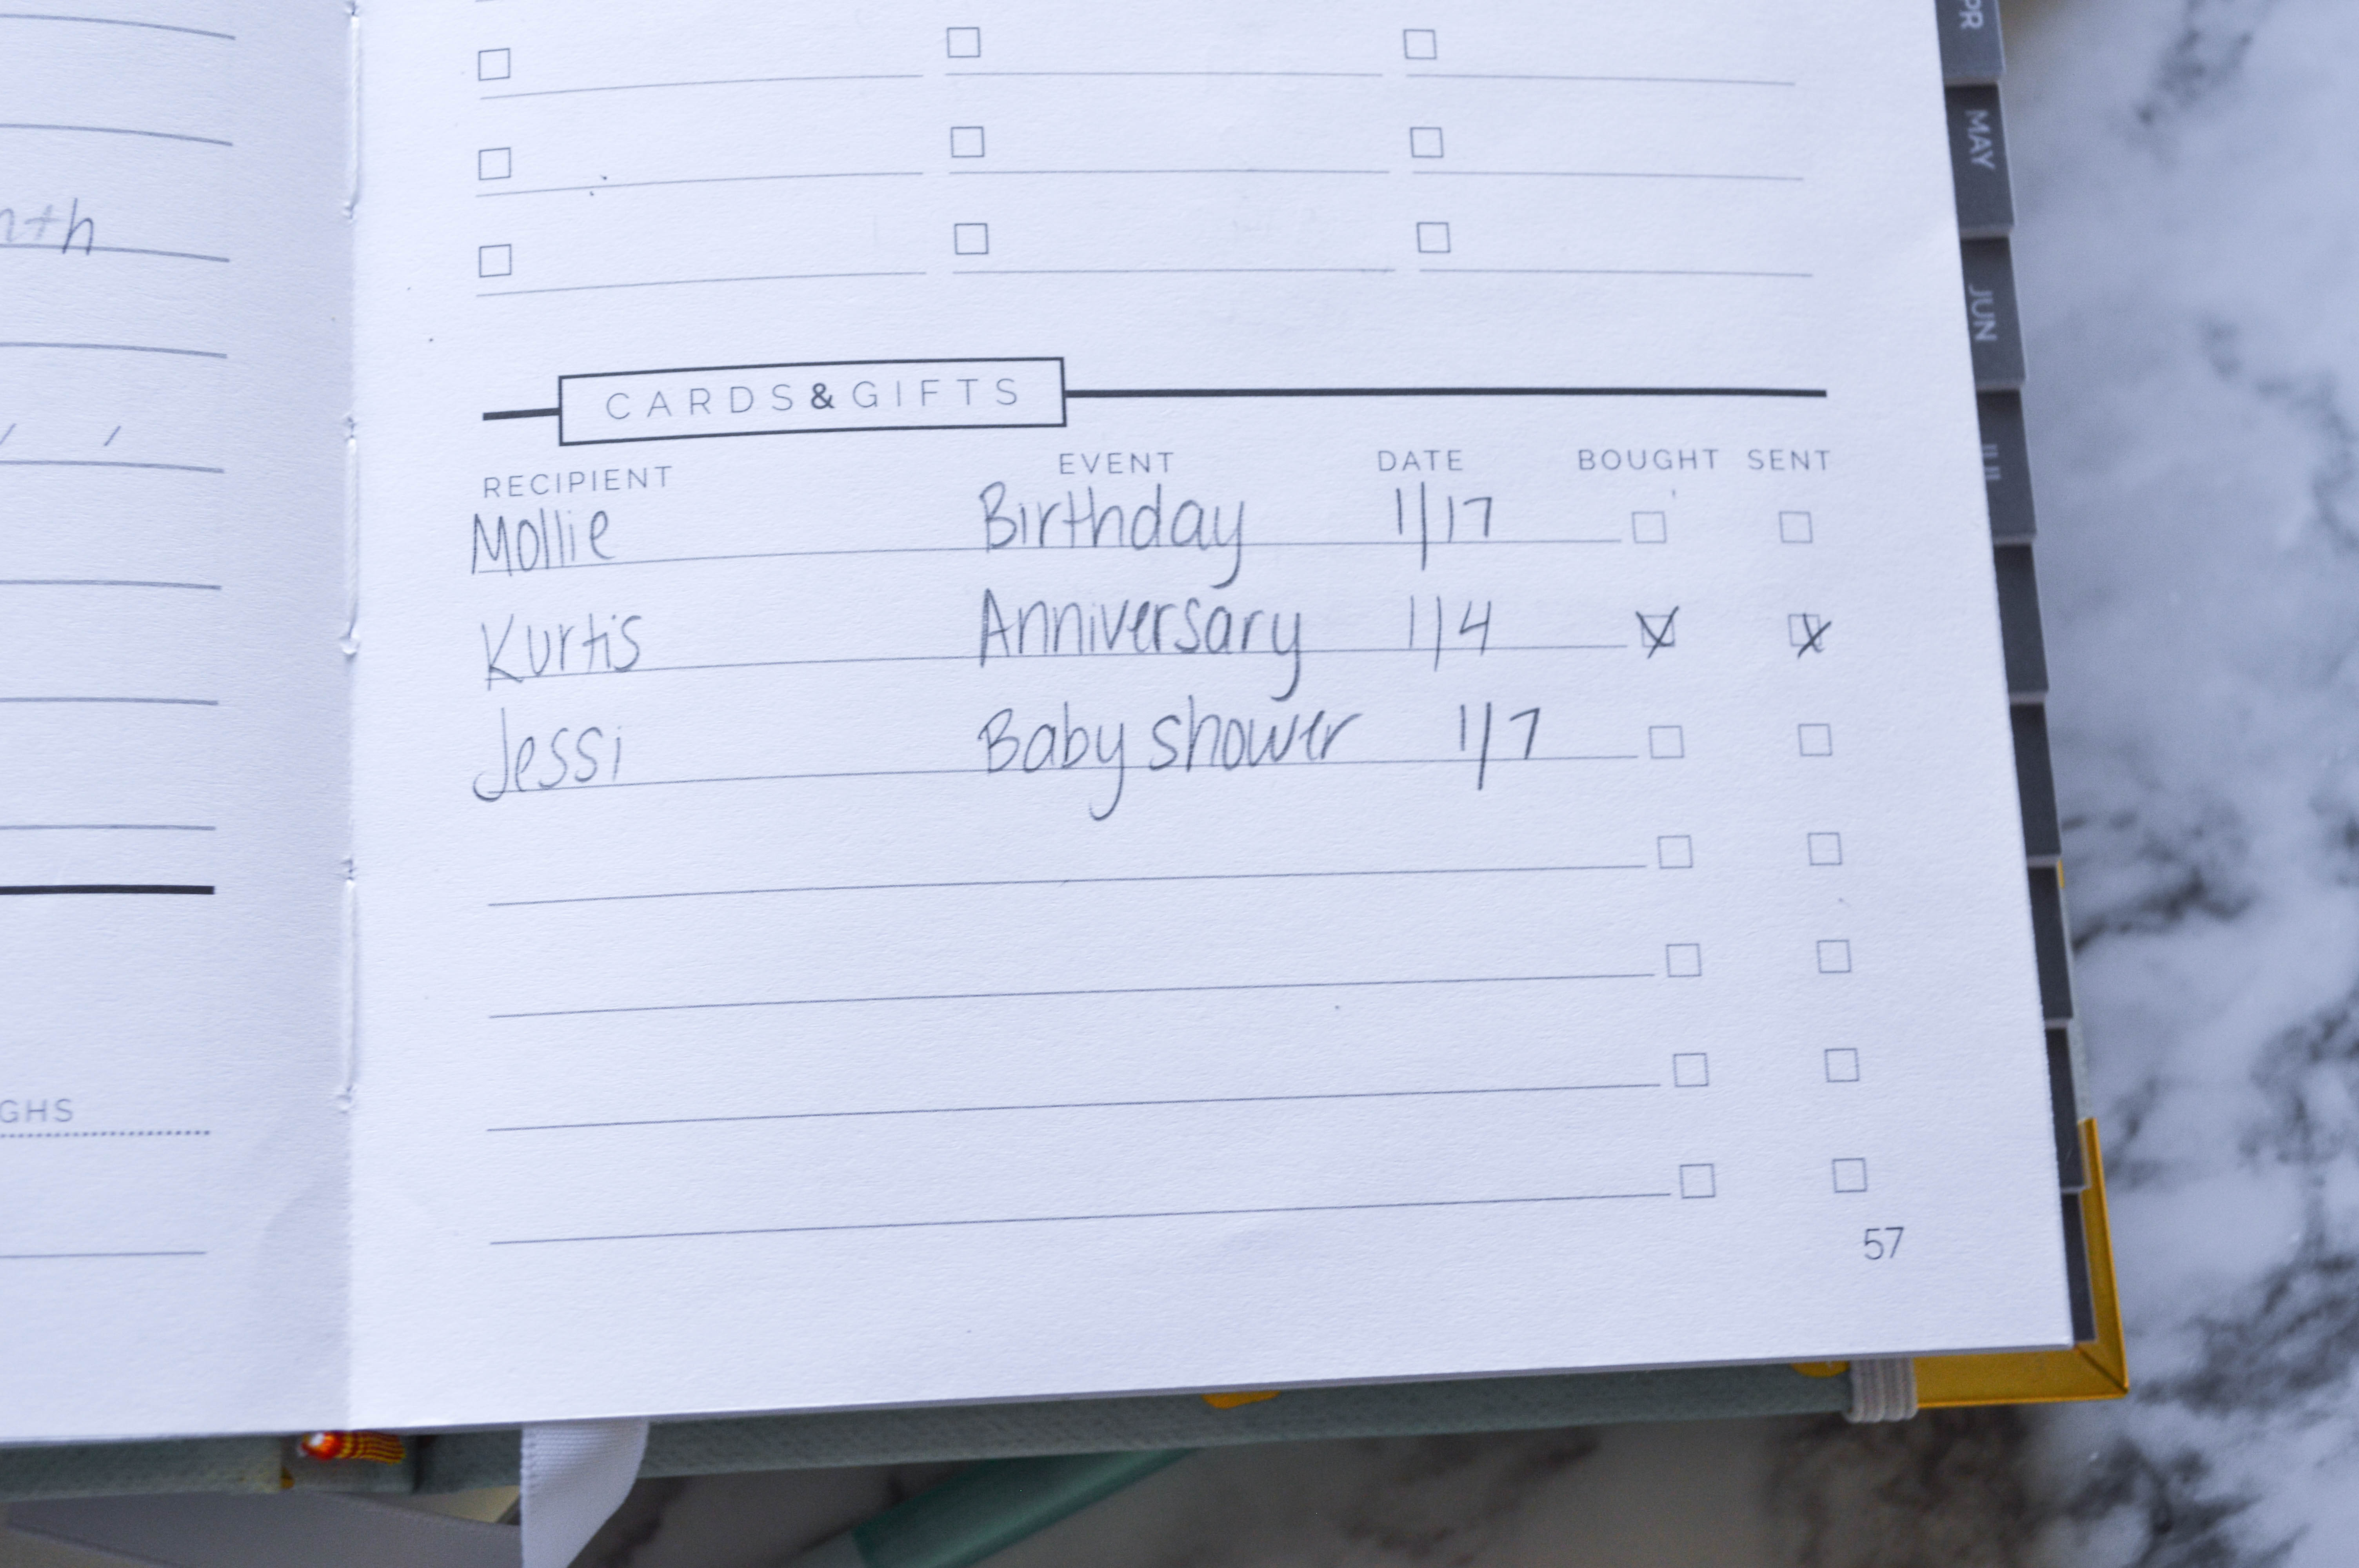 PR
MAY
JUN
CARDS&GIFTS
RECIPIENT EVENT DATE BOUGHT SENT
Mollie Birthday 1/17
Kurtis Anniversary 1/4
Jessi Baby shower 1/7
57
nth
GHS